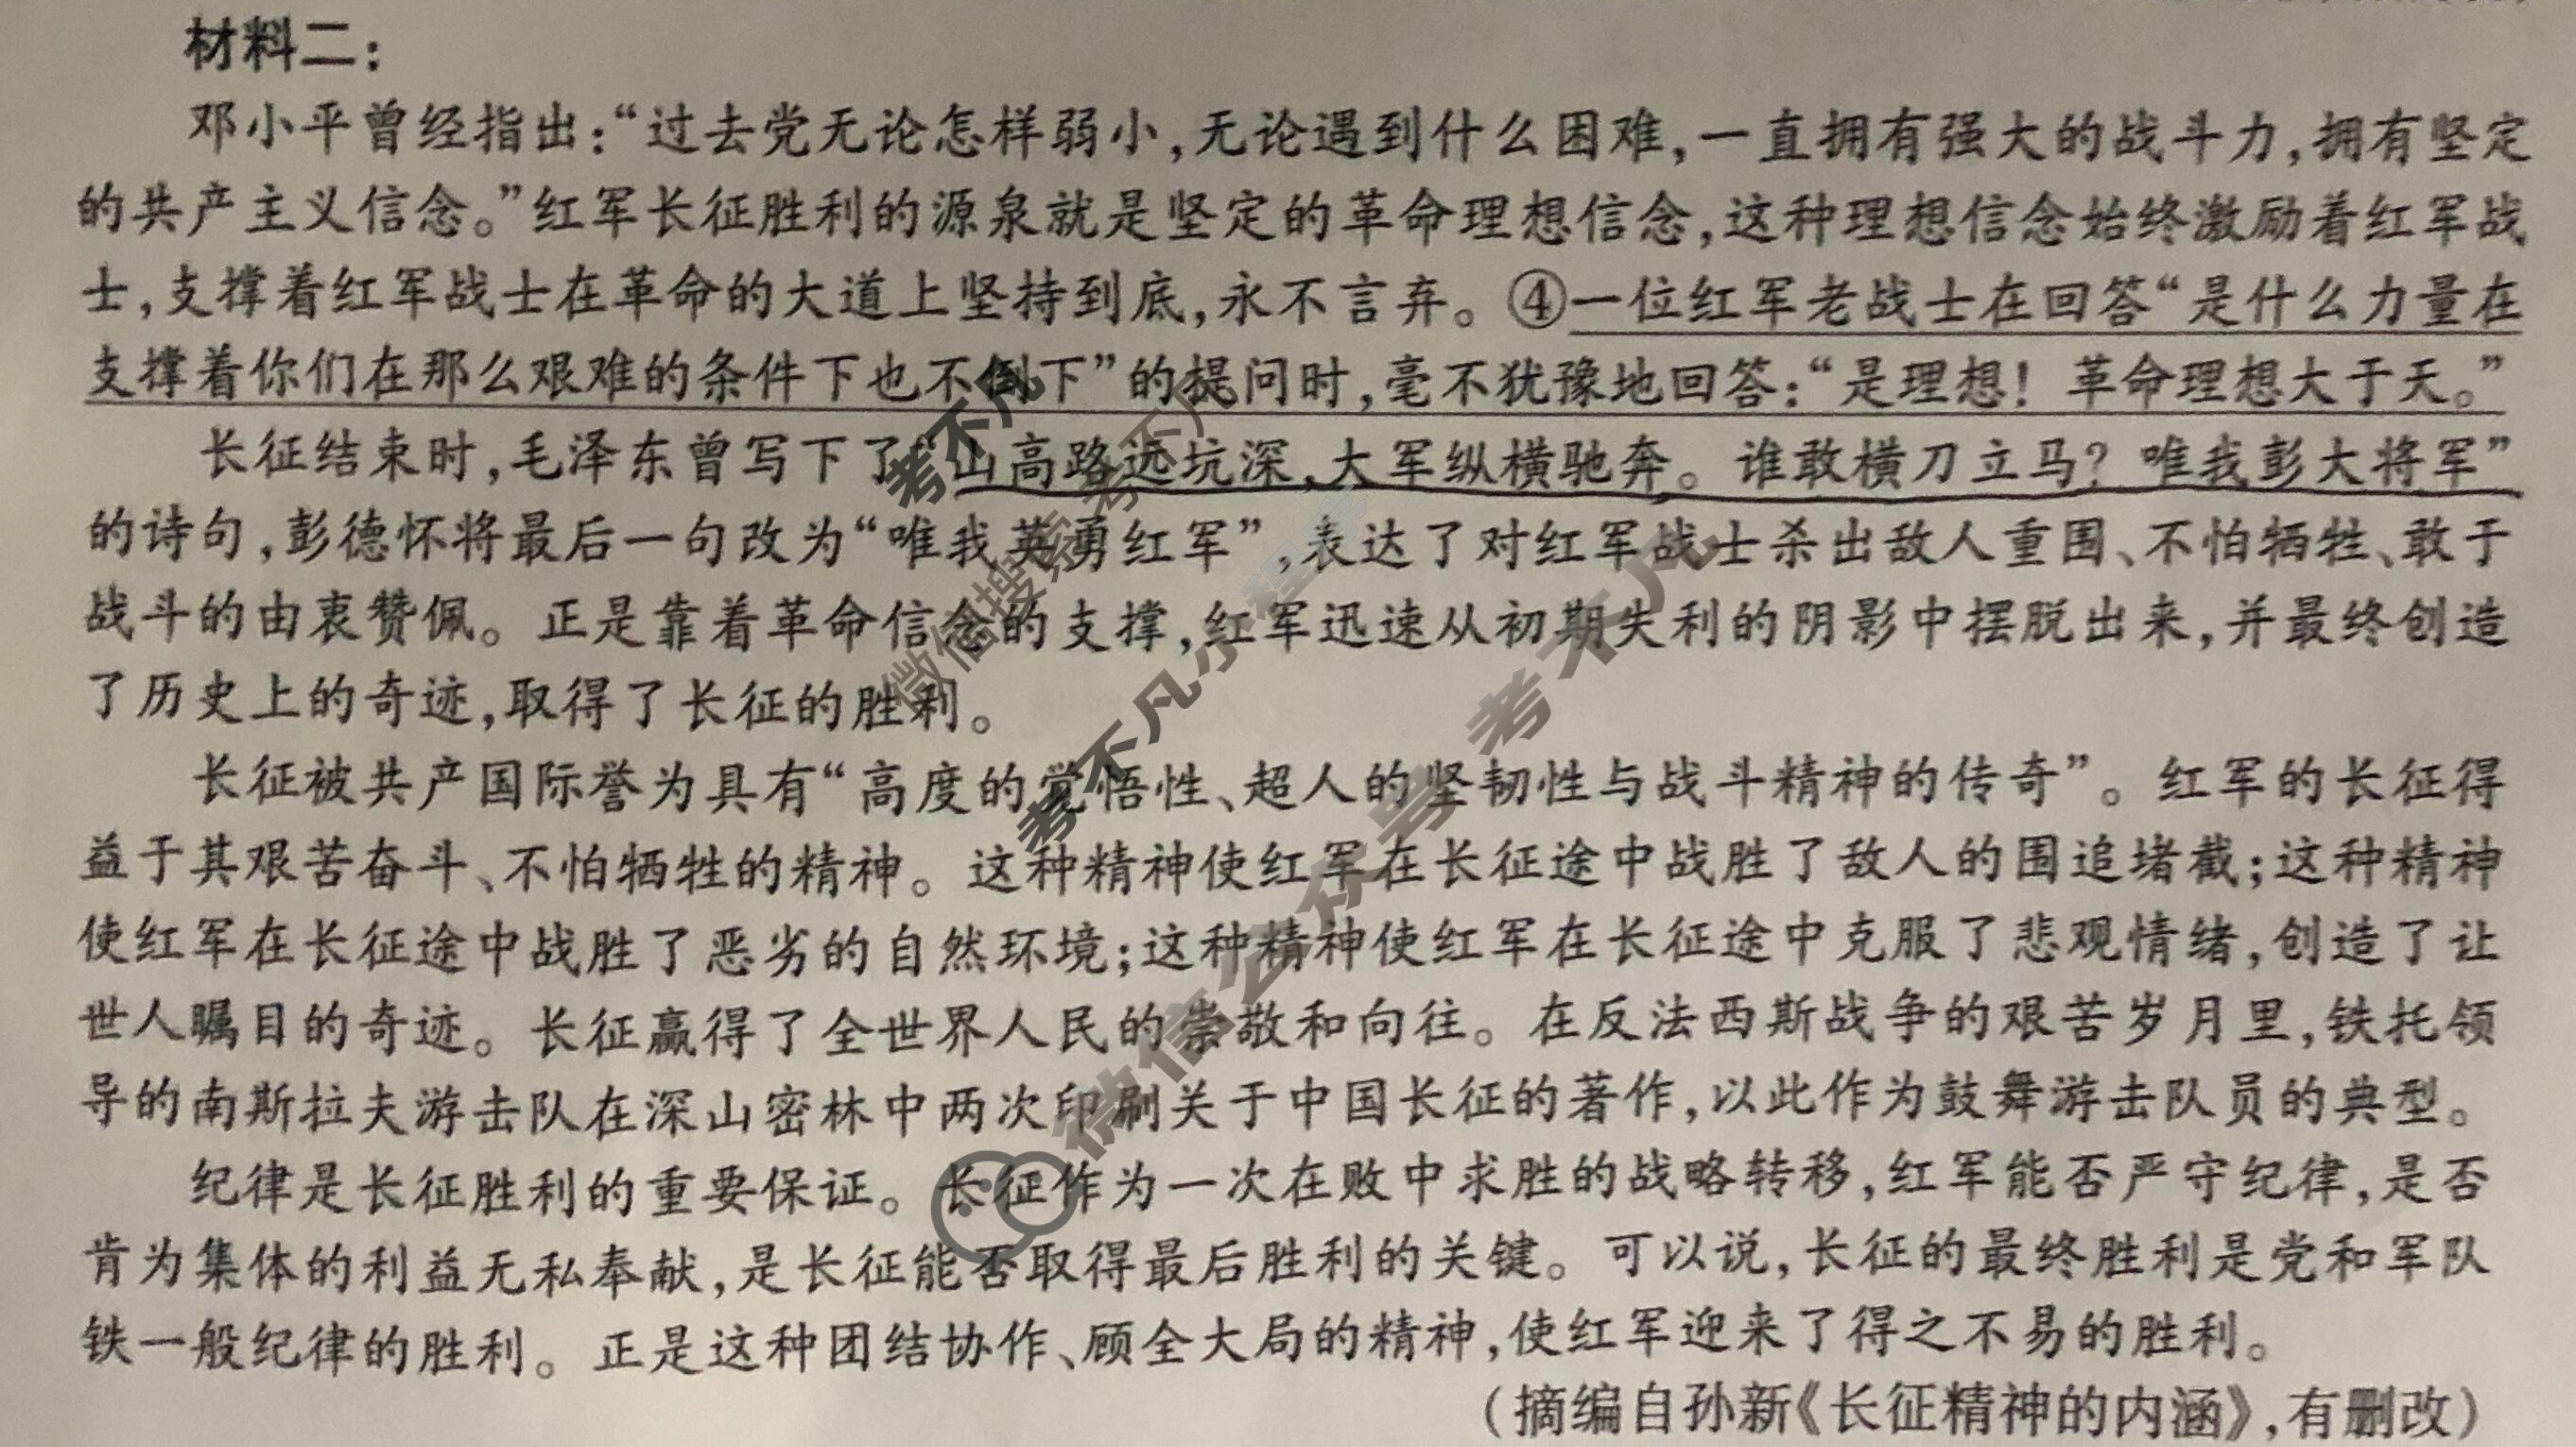 材料二：
邓小平曾经指出：“过去党无论怎样弱小，无论遇到什么困难，一直拥有强大的战斗力，拥有坚定
的共产主义信念。”红军长征胜利的源泉就是坚定的革命理想信念，这种理想信念始终激励着红军战
士，支撑着红军战士在革命的大道上坚持到底，永不言弃。④一位红军老战士在回答“是什么力量在
支撑着你们在那么艰难的条件下也不倒下”的提问时，毫不犹豫地回答：“是理想！革命理想大于天。”
长征结束时，毛泽东曾写下了“山高路远坑深，大军纵横驰奔。谁敢横刀立马？唯我彭大将军”
的诗句，彭德怀将最后一句改为“唯我英勇红军”，表达了对红军战士杀出敌人重围、不怕牺牲、敢于
战斗的由衷赞佩。正是靠着革命信念的支撑，红军迅速从初期失利的阴影中摆脱出来，并最终创造
了历史上的奇迹，取得了长征的胜利。
长征被共产国际誉为具有“高度的觉悟性、超人的坚韧性与战斗精神的传奇”。红军的长征得
益于其艰苦奋斗、不怕牺牲的精神。这种精神使红军在长征途中战胜了敌人的围追堵截；这种精神
使红军在长征途中战胜了恶劣的自然环境；这种精神使红军在长征途中克服了悲观情绪，创造了让
世人瞩目的奇迹。长征赢得了全世界人民的崇敬和向往。在反法西斯战争的艰苦岁月里，铁托领
导的南斯拉夫游击队在深山密林中两次印刷关于中国长征的著作，以此作为鼓舞游击队员的典型。
纪律是长征胜利的重要保证。长征作为一次在败中求胜的战略转移，红军能否严守纪律，是否
肯为集体的利益无私奉献，是长征能否取得最后胜利的关键。可以说，长征的最终胜利是党和军队
铁一般纪律的胜利。正是这种团结协作、顾全大局的精神，使红军迎来了得之不易的胜利。
（摘编自孙新《长征精神的内涵》，有删改）
考不凡
微信搜索 考不凡
考不凡小程序
微信公众号 考不凡